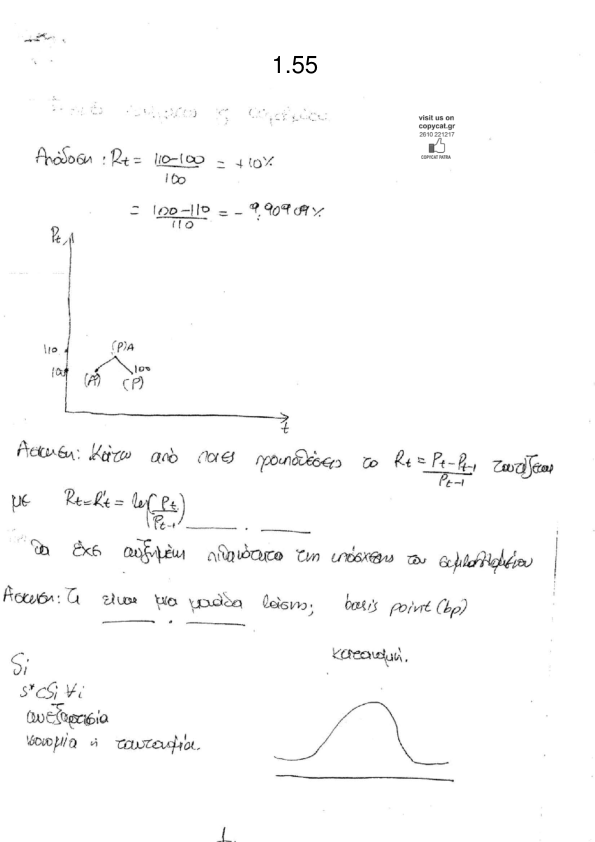 1.55
visit us on
copycat.gr
2610 221217
COPYCAT PATRA
Απόδοση : Rt = 110-100 / 100 = +10%
= 100-110 / 110 = -9,90909%
Pt
110
(P)A
100
(A)
100
(P)
t
Άσκηση: Κάτω από ποιες προϋποθέσεις το Rt = Pt - Pt-1 / Pt-1 ταυτίζεται
με Rt = R't = ln(Pt / Pt-1)
θα έχει αυξημένη πιθανότητα την υπόσχεση του
Άσκηση: Τι είναι μια μονάδα βάσης; basis point (bp)
Κατανομή.
Si
s* c Si ∀i
ανεξαρτησία
ισονομία ή ταυτονομία.